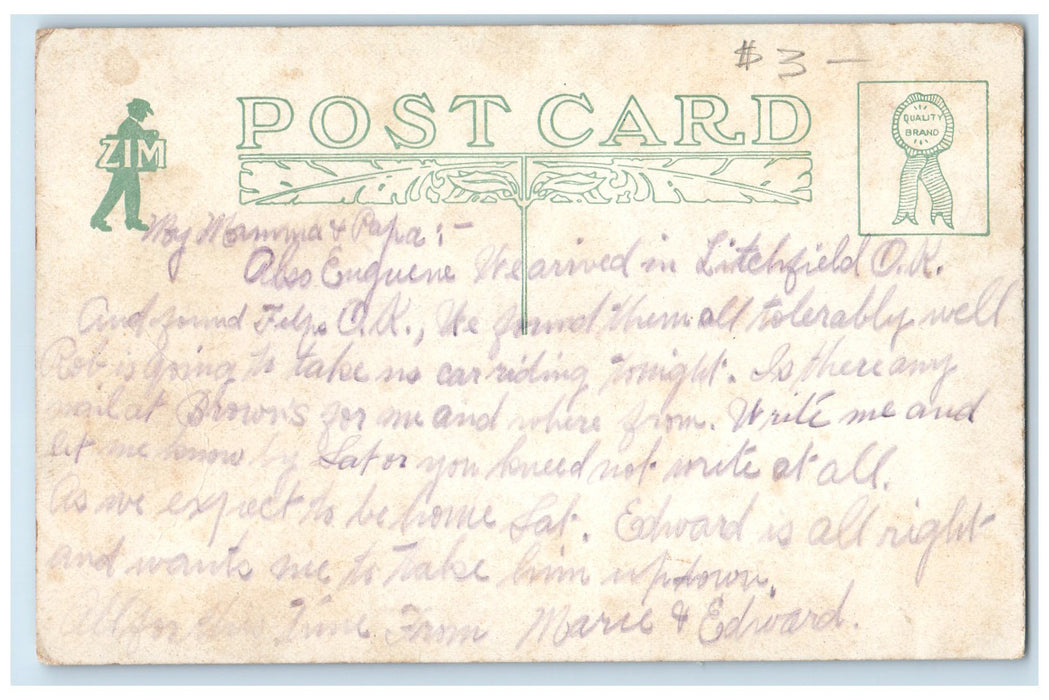 $3 —
POST CARD
ZIM
QUALITY
BRAND
My Mamma & Papa :-
Also Euguene We arived in Litchfield O.K.
And found Felps O.K., We found them all tolerably well
Rob is going to take us car riding tonight. Is there any
mail at Brown's for me and where from. Write me and
let me know by Sat or you kneed not write at all.
As we expect to be home Sat. Edward is all right
and wants me to take him uptown.
All for this Time From Marie & Edward.